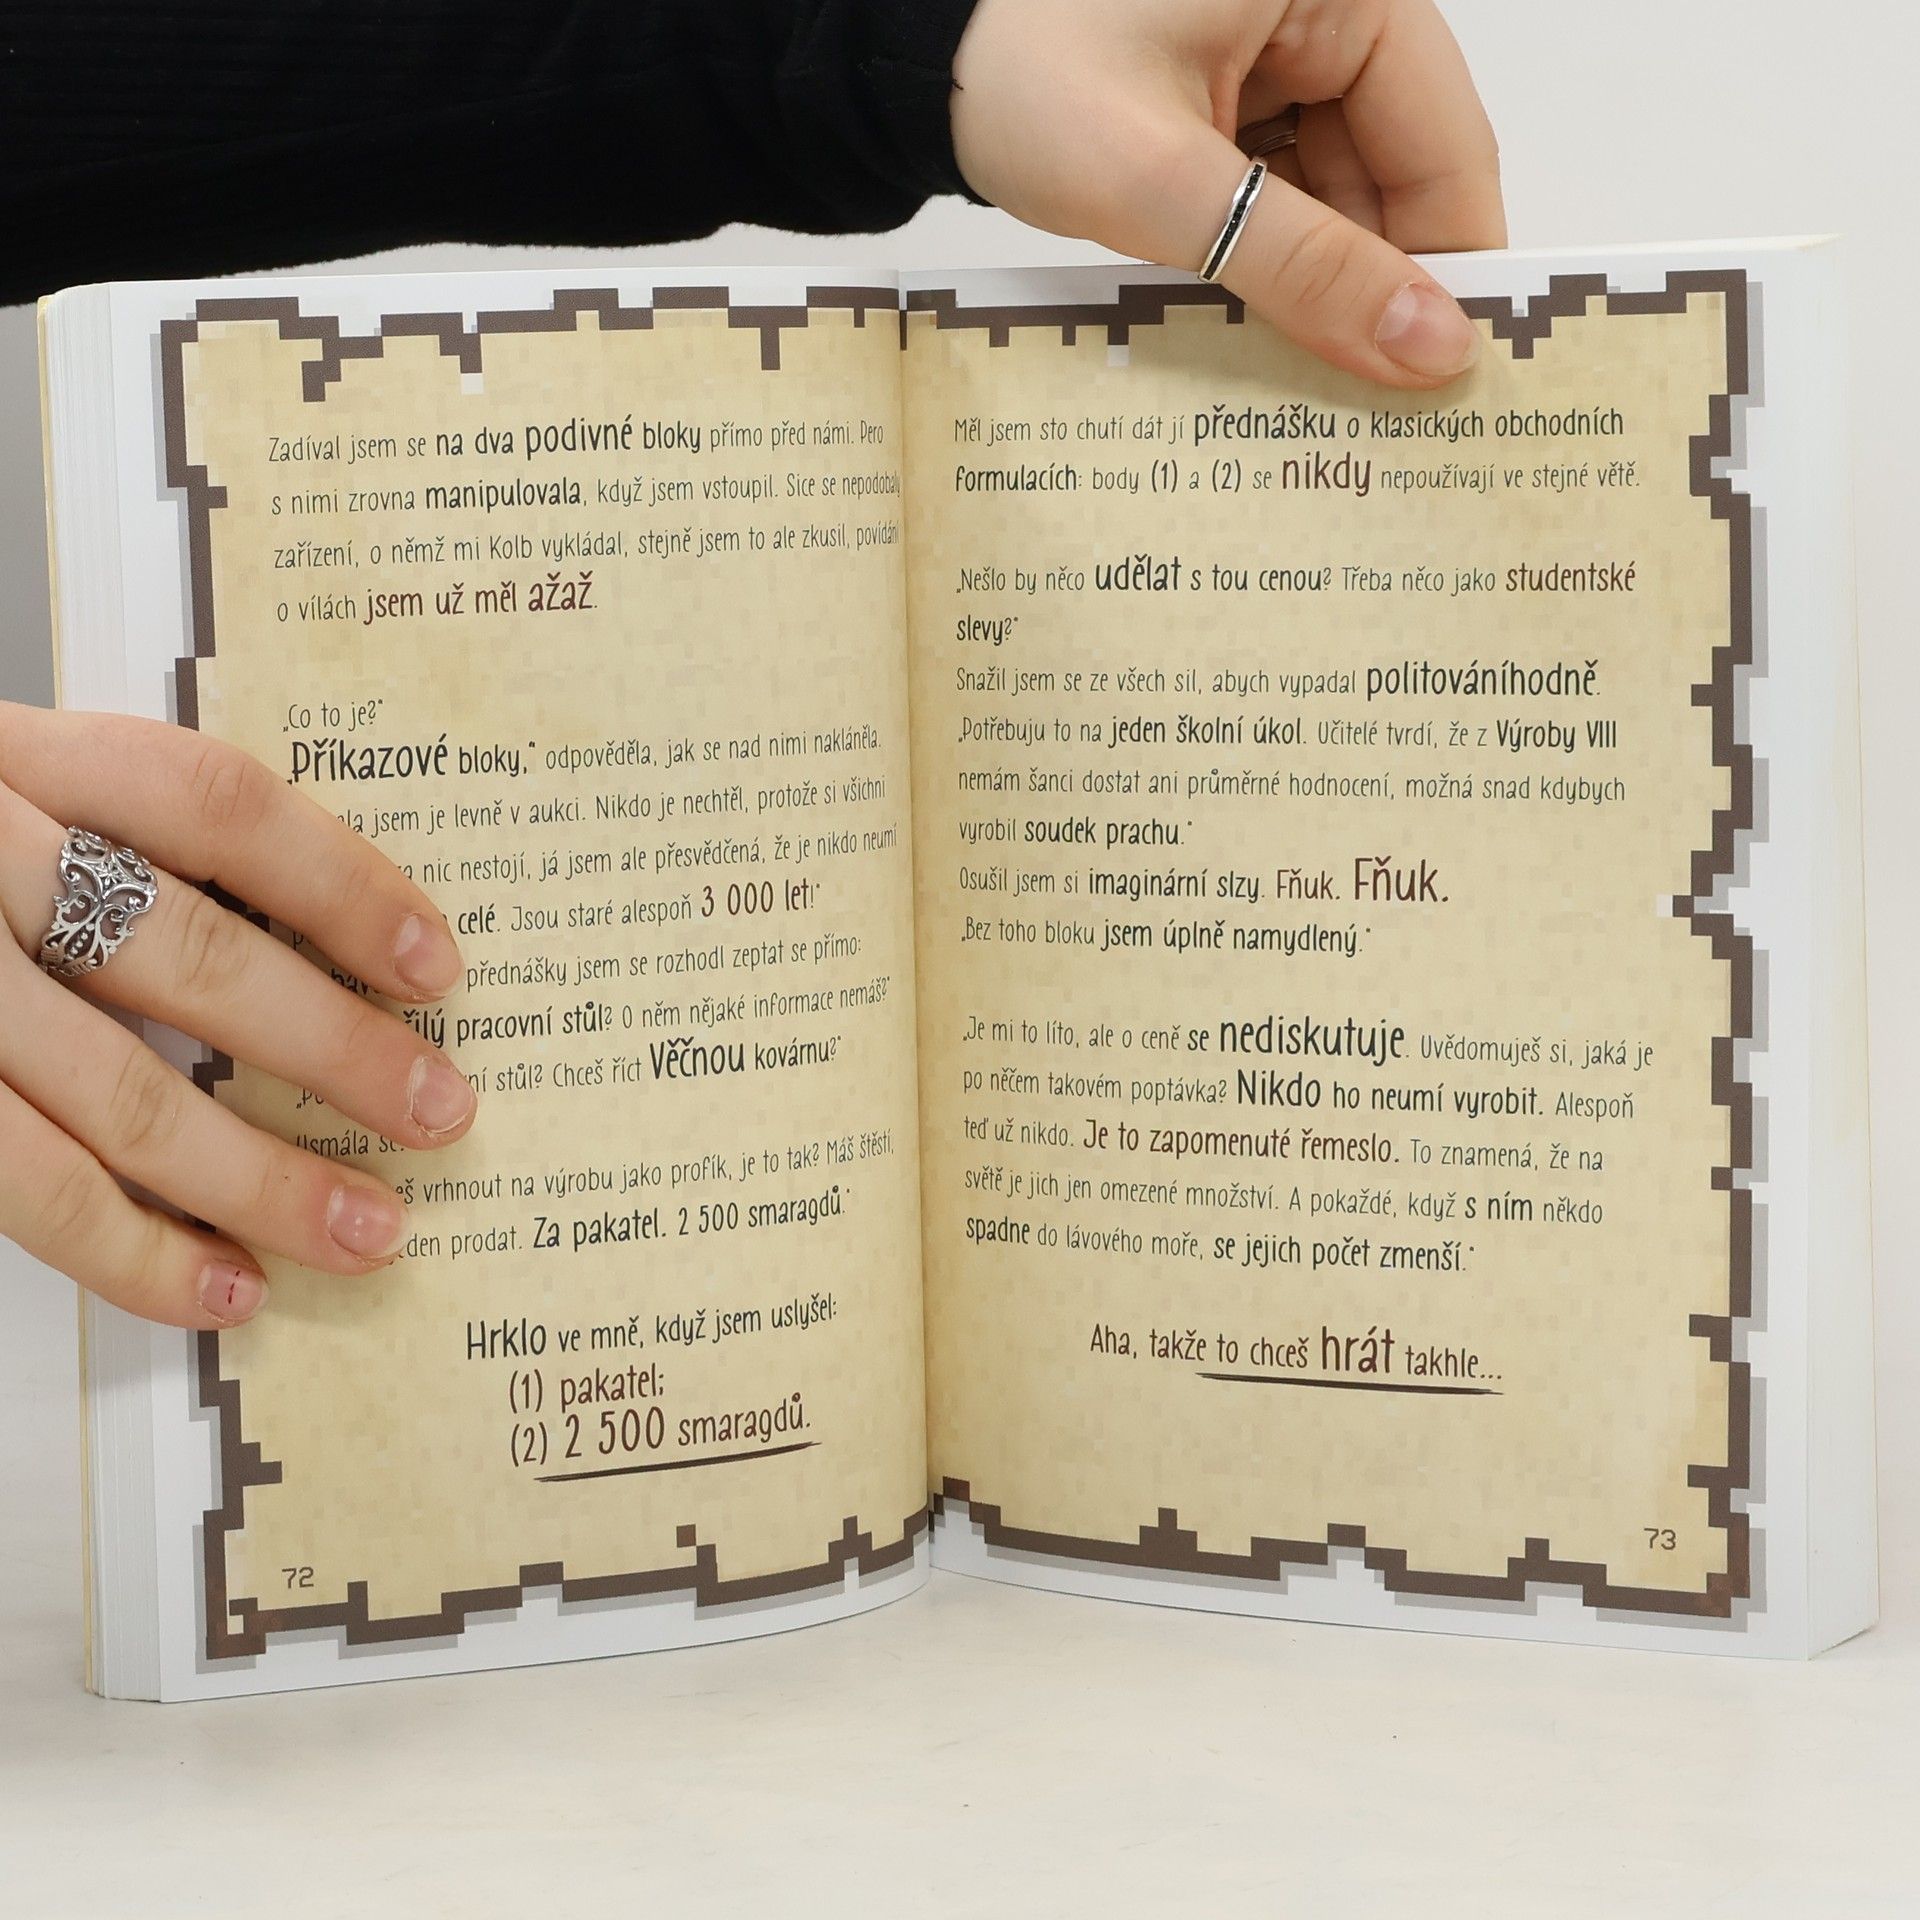 Zadíval jsem se na dva podivné bloky přímo před námi. Pero
s nimi zrovna manipulovala, když jsem vstoupil. Sice se nepodobaly
zařízení, o němž mi Kolb vykládal, stejně jsem to ale zkusil, povídání
o vílách jsem už měl ažaž.
„Co to je?“
„Příkazové bloky,“ odpověděla, jak se nad nimi nakláněla.
jsem je levně v aukci. Nikdo je nechtěl, protože si všichni
nic nestojí, já jsem ale přesvědčená, že je nikdo neumí
celé. Jsou staré alespoň 3 000 let!“
přednášky jsem se rozhodl zeptat se přímo:
pracovní stůl? O něm nějaké informace nemáš?“
stůl? Chceš říct Věčnou kovárnu?“
Usmála se.
vrhnout na výrobu jako profík, je to tak? Máš štěstí,
prodat. Za pakatel. 2 500 smaragdů.“
Hrklo ve mně, když jsem uslyšel:
(1) pakatel;
(2) 2 500 smaragdů.
72
Měl jsem sto chutí dát jí přednášku o klasických obchodních
formulacích: body (1) a (2) se nikdy nepoužívají ve stejné větě.
„Nešlo by něco udělat s tou cenou? Třeba něco jako studentské
slevy?“
Snažil jsem se ze všech sil, abych vypadal politováníhodně.
„Potřebuju to na jeden školní úkol. Učitelé tvrdí, že z Výroby VIII
nemám šanci dostat ani průměrné hodnocení, možná snad kdybych
vyrobil soudek prachu.“
Osušil jsem si imaginární slzy. Fňuk. Fňuk.
„Bez toho bloku jsem úplně namydlený.“
„Je mi to líto, ale o ceně se nediskutuje. Uvědomuješ si, jaká je
po něčem takovém poptávka? Nikdo ho neumí vyrobit. Alespoň
teď už nikdo. Je to zapomenuté řemeslo. To znamená, že na
světě je jich jen omezené množství. A pokaždé, když s ním někdo
spadne do lávového moře, se jejich počet zmenší.“
Aha, takže to chceš hrát takhle...
73